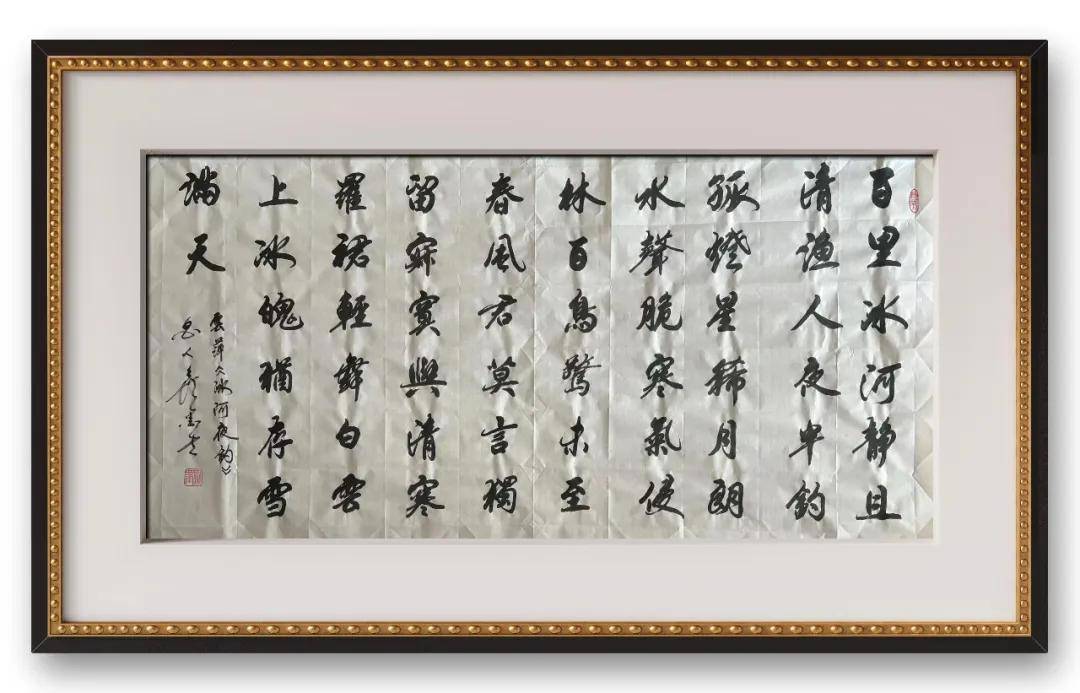 百里冰河静且
清渔人夜半钓
孤燈星稀月朗
水聲脆寒氣侵
林百鳥驚未至
春風君莫言獨
留寂寞與清寒
羅裙輕舞白雲
上冰魄猶存雪
满天
雲萍久冰河夜钓